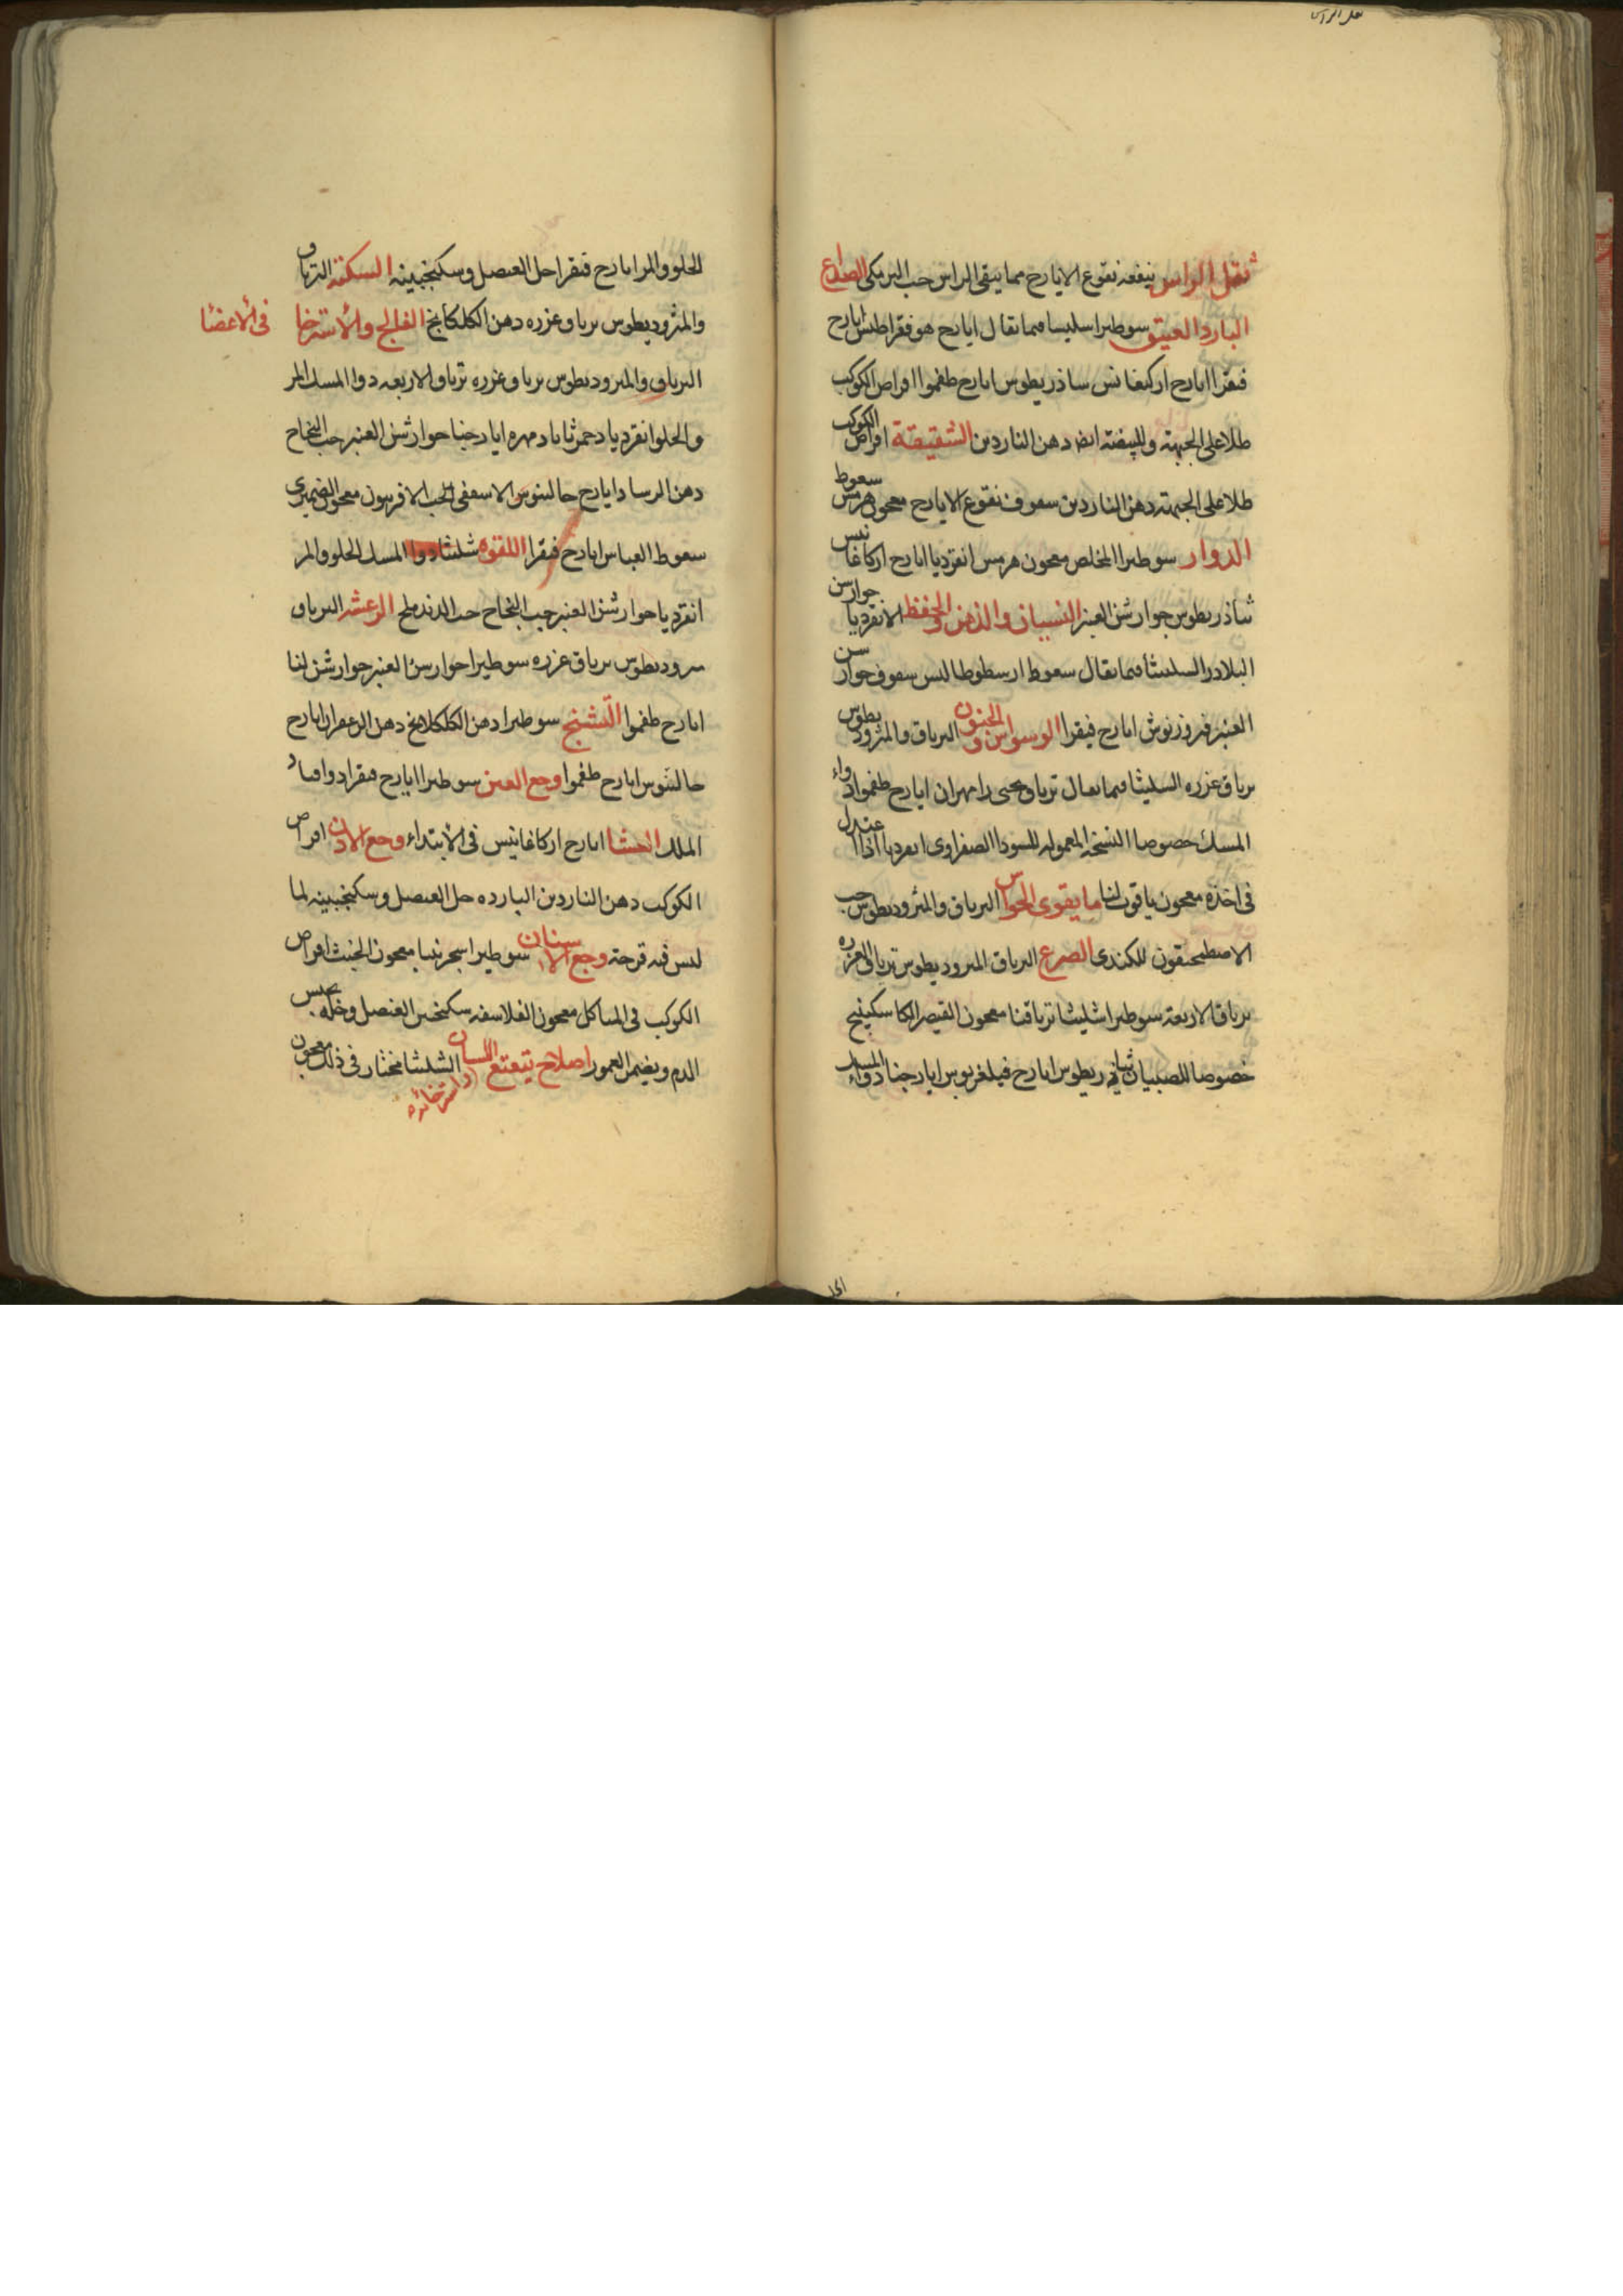 ثقل الراس ينفعه نقوع الايارج مما ينقى الراس حب البرمكى الصداع
البارد العتيق سوطيرا سليسا فيما يقال ايارج هوفقراطيس ايارج
فيقرا ايارج اركيغانس ساذريطوس ايارج طغموا اقراص الكوكب
طلا على الجبهة وللبيضة ايضا دهن الناردين الشقيقة اقراص الكوكب
طلا على الجبهة دهن الناردين سعوف نقوع الايارج معجون هرمس سعوط
الدوار سوطيرا المخلص معجون هرمس انقرديا ايارج اركاغانيس
ثاذريطوس جوارشن العنبر النسيان والذهن والحفظ الانقرديا جوارسن
البلادر السليثا فيما يقال سعوط ارسطوطاليس سعوف جوارسن
العنبر فيروزنوش ايارج فيقرا الوسواس والجنون الترياق والمثروديطوس
ترياق عزره السليثا فيما يقال ترياق يحيى رامهران ايارج طغموا دواء
المسك خصوصا النسخة المعمولة للسودا الصفراوى انقرديا اذا عندل
فى اخذه معجون ياقوت لنا ما يقوى الحواس الترياق والمثروديطوس حب
الاصطمحيقون للكندى الصرع الترياق المثروديطوس ترياق العزره
ترياق الاربعة سوطيرا شليثا ترياقنا معجون القيصر الكاسكبينج
خصوصا للصبيان ثياذريطوس ايارج فيلغريوس ايارجنا دواء المسك
الحلو والمر ايارج فيقرا خل العنصل وسكنجبينه السكتة الترياق
والمثروديطوس ترياق عزره دهن الكلكلانج الفالج والاسترخا فى الاعضا
الترياق والمثروديطوس ترياق عزره ترياق الاربعه دوا المسك المر
والحلو انقرديا دحمرثا بادمهره ايارجنا جوارشن العنبر حب النجاح
دهن الرساد ايارج جالينوس الاسعفى حب الافربيون معجون الضميرى
سعوط العباس ايارج فيقرا اللقوه شليثا دوا المسك الحلو والمر
انقرديا جوارشن العنبر حب النجاح حب الدند ملح الرعشه الترياق
مثروديطوس ترياق عزره سوطيرا جوارسن العنبر جوارشن لنا
ايارج طغموا التشنج سوطيرا دهن الكلكلانج دهن الزعفران ايارج
جالينوس ايارج طغموا وجع العين سوطيرا ايارج فيقرا دوا
الملك العشا ايارج اركاغانيس فى الابتداء وجع الاذن اقراص
الكوكب دهن الناردين البارده خل العنصل وسكنجبينه لما
ليس فيه قرحة وجع الاسنان سوطيرا سجرنيا معجون الخبث اقراص
الكوكب فى المتاكل معجون الفلاسفه سكنجبين العنصل وخله يحبس
الدم ويضمر العمور اصلاح تتعتع اللسان واسترخائه الشليثا مختار فى ذلك معجون